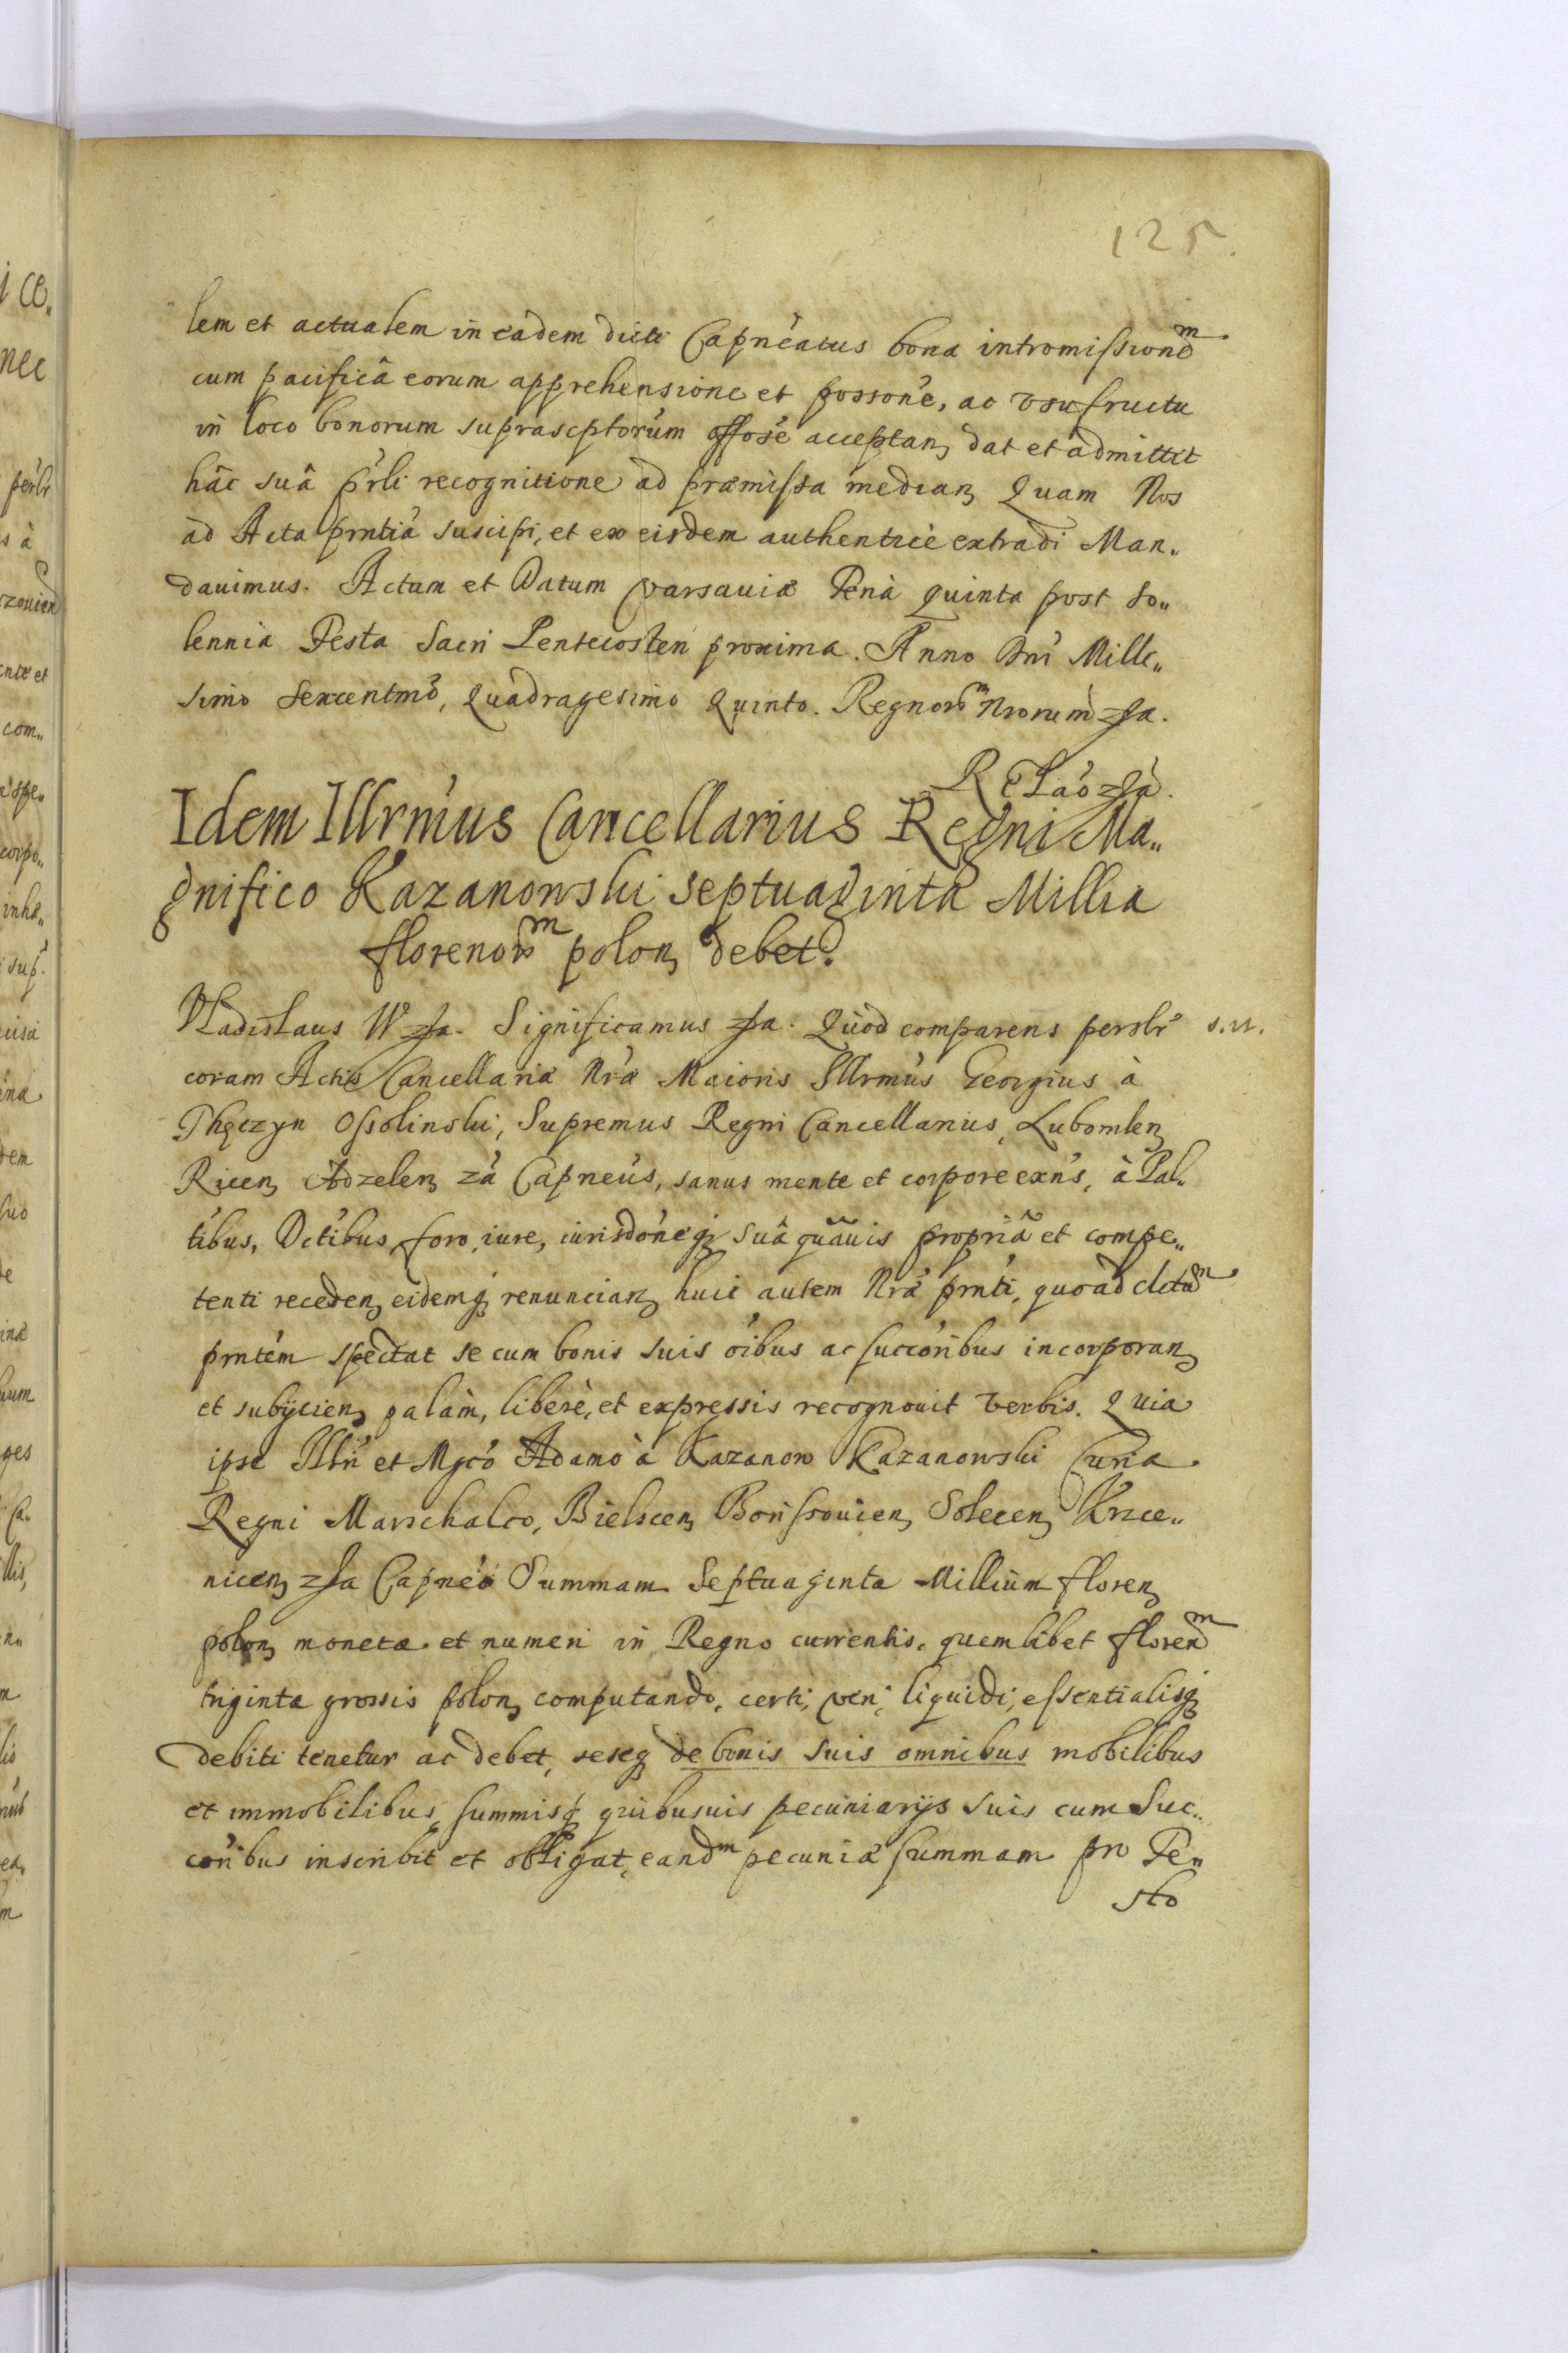 125.
lem et actualem in eadem dicti Capnéatus bona intromissionem
cum pacificâ eorum apprehensione et possone, ac vsufructu
in loco bonorum suprascptorum offose acceptan dat et admittit
hâc suâ prli recognitione ad præmissa median Quam Nos
ad Acta prntia suscipi, et ex eisdem authenticè extradi Man„
dauimus. Actum et Datum Varsauiæ Feria quinta post So„
lennia Festa Sacri Pentecosten proxima. Anno Dni Mille„
simo Sexcentmo, Quadragesimo Quinto. Regnorm Nrorum zsa.
Relao zsa.
Idem Illrmus Cancellarius Regni Ma„
gnifico Kazanowski septuaginta Millia
florenorm polon debet.
Vladislaus IV zsa. Significamus zsa. Quod comparens persolr s.n.
coram Actis Cancellariæ Nræ Maioris Illrmus Georgius à
Thęczyn Ossolinski, Supremus Regni Cancellarius, Lubomlen
Ricen Adzelen za Capneus, sanus mente et corpore exns, à Pal„
tibus, Dctibus foro, iure, iurisdoneq suâ quauis propriâ et compe„
tenti receden eidemq renuncian huic autem Nræ prnti, quoad actum
prntem spectat se cum bonis suis oibus ac succoribus incorporan
et subijcien palàm, liberè, et expressis recognouit verbis. Quia
ipse Illri et Mgco Adamo à Kazanow Kazanowski Curiæ
Regni Marschalco, Bielscen Borissouien Solecen Krzce„
nicen zsa Capneo Summam Septuaginta Millium floren
polon monetæ et numeri in Regno currentis, quemlibet florenm
triginta grossis polon computando, certi, veri, liquidi, essentialisq
debiti tenetur ac debet, seseq de bonis suis omnibus mobilibus
et immobilibus, summisq quibusuis pecuniarijs suis cum Suc„
coribus inscribit et obligat, eandm pecuniæ summam pro Fe„
sto